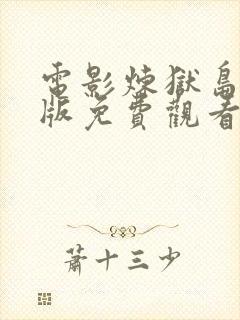 電影煉獄島
版免費觀看
蕭十三少